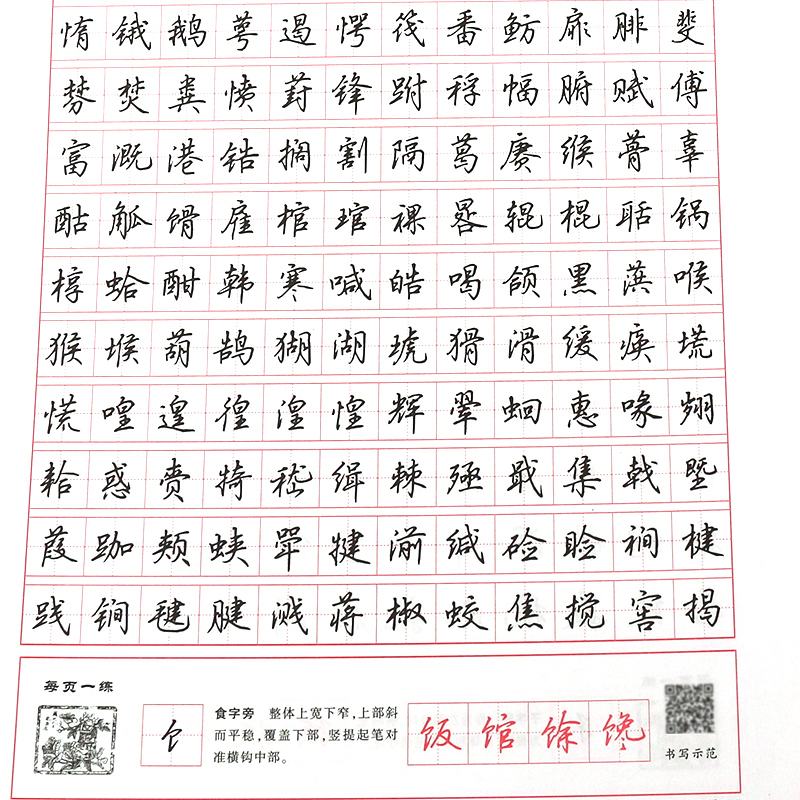 惰锇鹅萼遏愕筏番鲂扉腓斐
棼焚粪愤葑锋跗稃幅腑赋傅
富溉港锆搁割隔葛赓缑蓇辜
酤觚馉雇棺琯祼晷辊棍聒锅
椁蛤酣韩寒喊皓喝颌黑葓喉
猴堠葫鹄猢湖琥猾滑缓痪塃
慌喤遑徨湟惶辉翚蛔惠喙翙
耠惑赍犄嵇缉棘殛戢集戟塈
葭跏颊蛱斝犍湔缄硷睑裥楗
践锏毽腱溅蒋椒蛟焦搅窖揭
每页一练
饣
食字旁 整体上宽下窄，上部斜
而平稳，覆盖下部，竖提起笔对
准横钩中部。
饭馆馀馋
书写示范